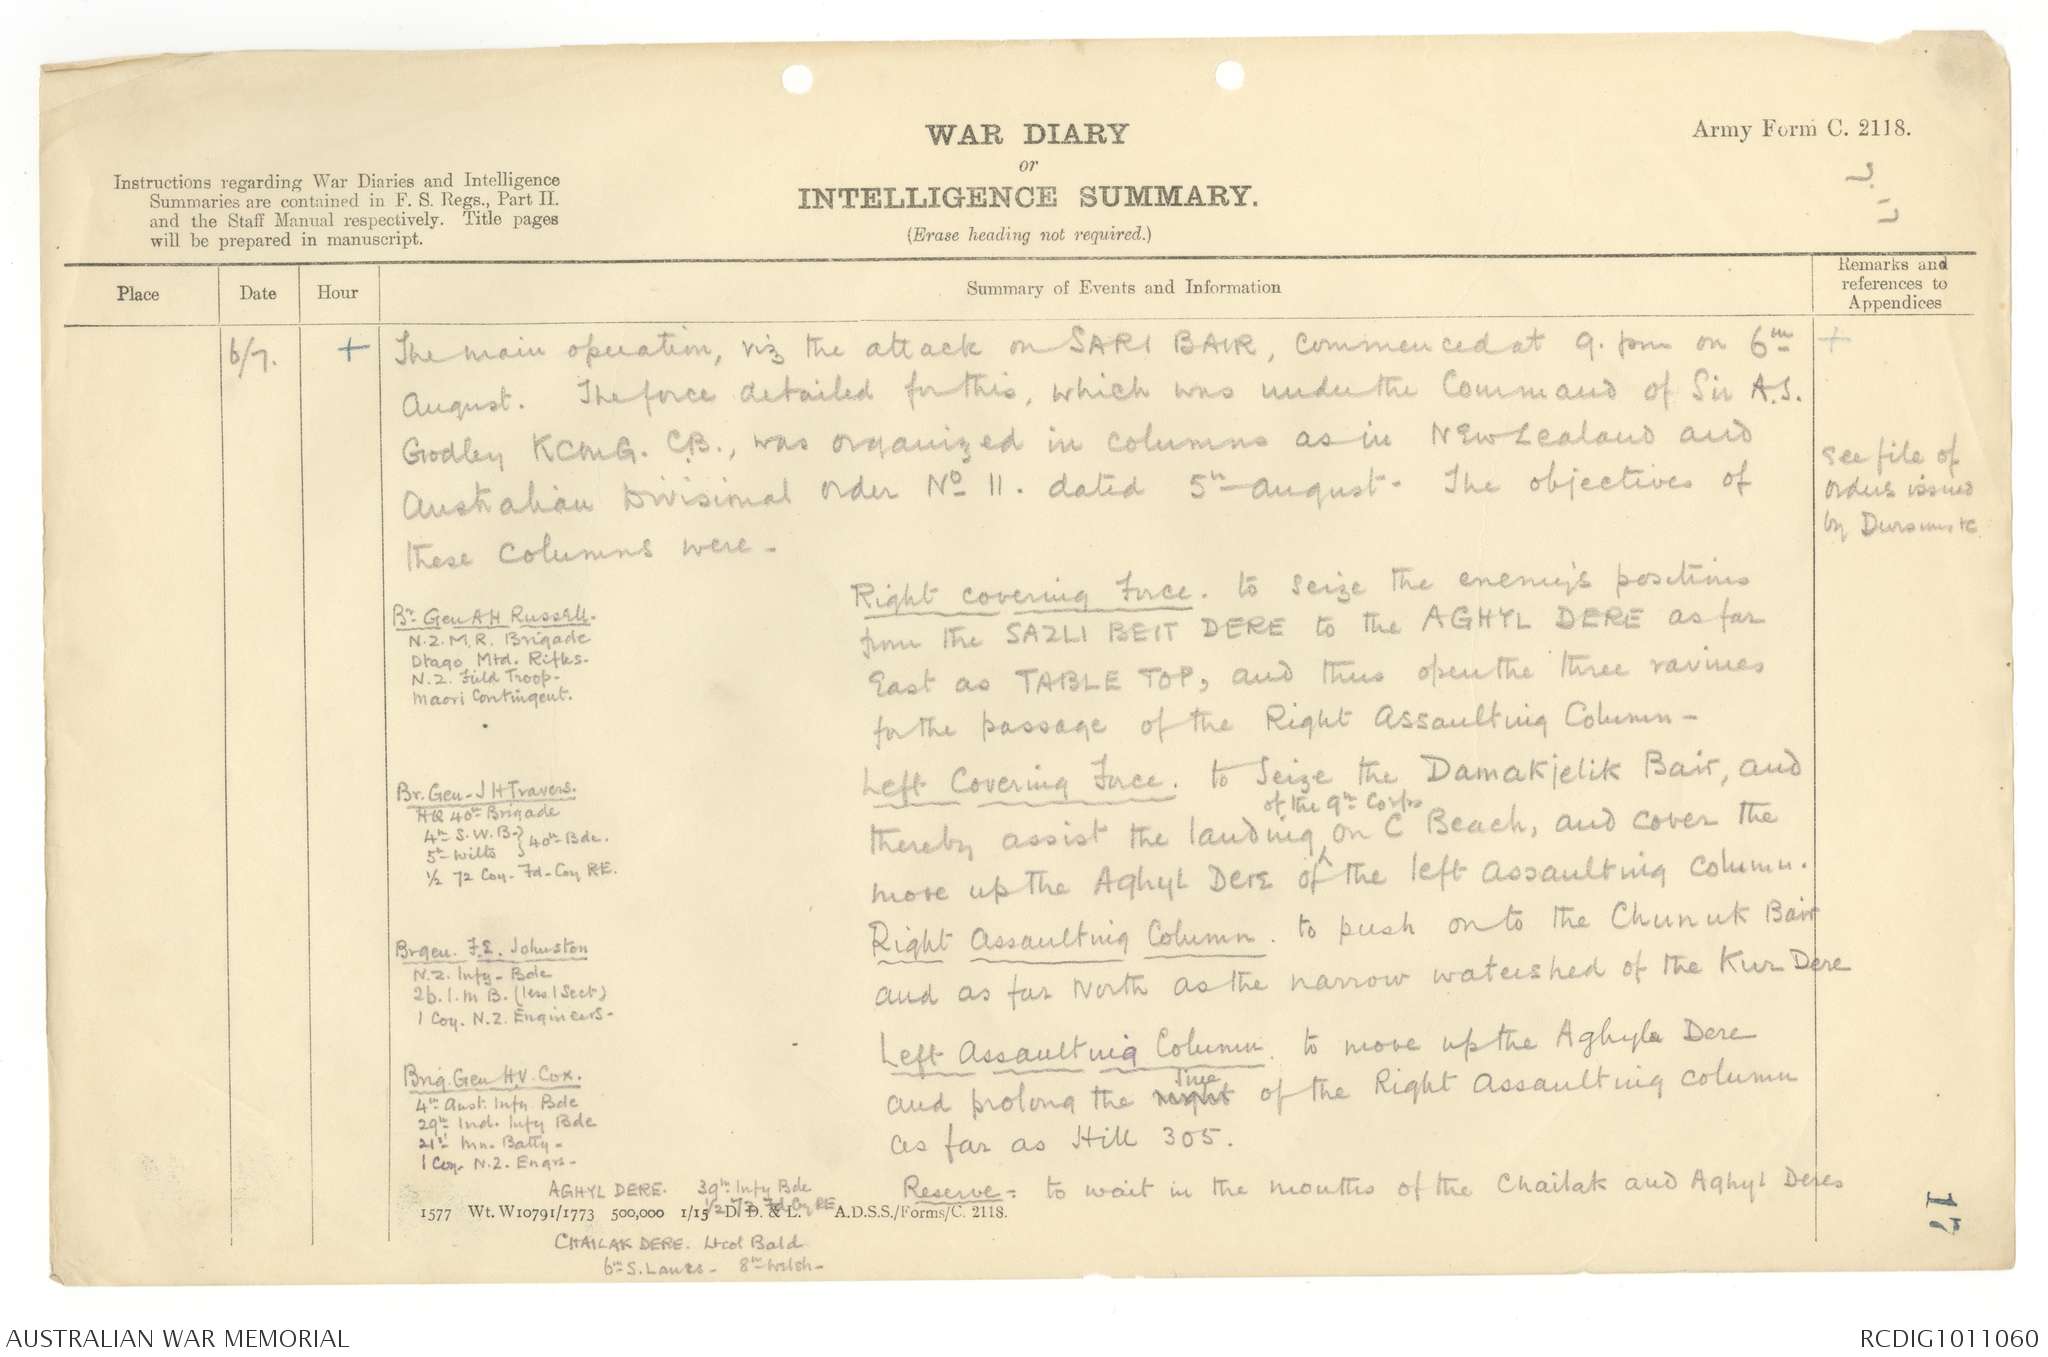 WAR DIARY
or
INTELLIGENCE SUMMARY.
(Erase heading not required.)
Army Form C. 2118.
Instructions regarding War Diaries and Intelligence
Summaries are contained in F. S. Regs., Part II.
and the Staff Manual respectively. Title pages
will be prepared in manuscript.
Place
Date
Hour
Summary of Events and Information
Remarks and
references to
Appendices
6/7. + The main operation, viz the attack on SARI BAIR, commenced at 9. pm on 6th +
August. The force detailed for this, which was under the Command of Sir A.J.
Godley KCMG. CB., was organized in columns as in New Zealand and
Australian Divisional order No 11. dated 5th August. The objectives of
these columns were -
see file of
orders issued
by
Right covering Force. to seize the enemy's positions
from the SAZLI BEIT DERE to the AGHYL DERE as far
East as TABLE TOP, and thus open the three ravines
for the passage of the Right Assaulting Column -
Br Gen A H Russell.
N.Z.M.R. Brigade
Otago Mtd. Rifles.
N.Z. Field Troop.
Maori Contingent.
Left Covering Force. to seize the Damakjelik Bair, and
of the 9th Corps
thereby assist the landing on C Beach, and cover the
move up the Aghyl Dere of the left assaulting column.
Br. Gen. J H Travers.
HQ 40th Brigade
4th S.W.B. } 40th Bde.
5th Wilts
1/2 72 Coy. Fd. Coy RE.
Right Assaulting Column. to push on to the Chunuk Bair
and as far North as the narrow watershed of the Kur Dere
Br gen. F.E. Johnston
N.Z. Infy. Bde
26. I. M B. (less 1 Sect)
1 Coy. N.Z. Engineers.
Left Assaulting Column. to move up the Aghyle Dere
line
and prolong the right of the Right Assaulting column
as far as Hill 305.
Brig. Gen H.V. Cox.
4th Aust. Infy Bde
29th Ind. Infy Bde
21st Mn. Batty.
1 Coy. N.Z. Engrs.
Reserve - to wait in the mouths of the Chailak and Aghyl Deres
AGHYL DERE. 39th Infy Bde
1/2 72 Fd Coy RE
1577 Wt. W10791/1773 500,000 1/15 D. D. & L. A.D.S.S./Forms/C. 2118.
CHAILAK DERE. Lt col Bald
6th S. Lancs. 8th Welsh.
AUSTRALIAN WAR MEMORIAL
RCDIG1011060